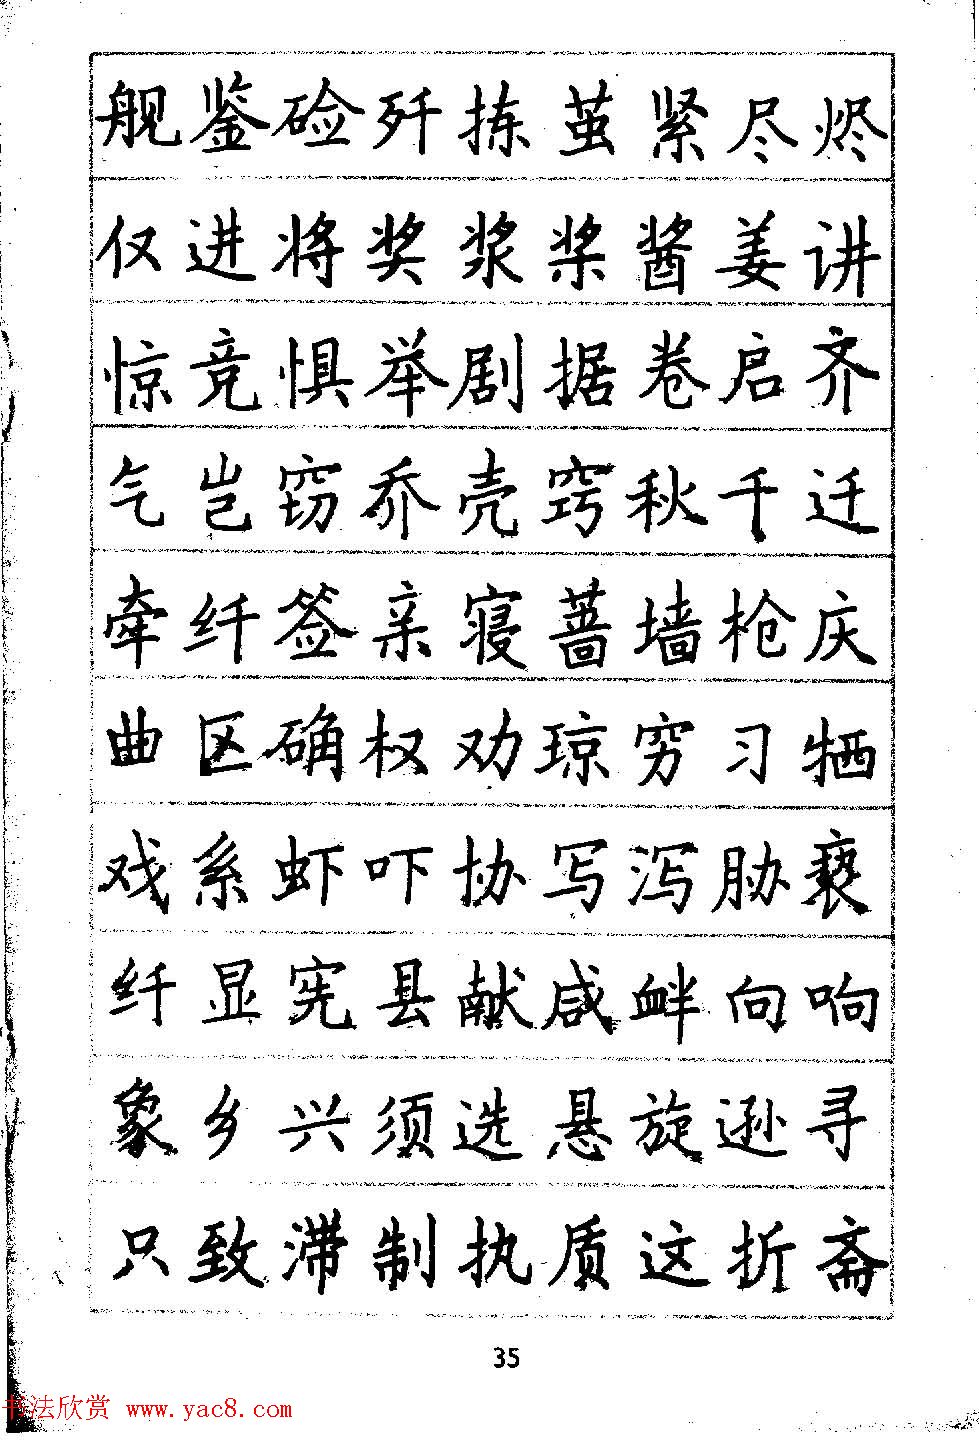 舰鉴硷歼拣茧紧尽烬
仅进将奖浆桨酱姜讲
惊竞惧举剧据卷启齐
气岂窃乔壳窍秋千迁
牵纤签亲寝蔷墙枪庆
曲区确权劝琼穷习牺
戏系虾吓协写泻胁亵
纤显宪县献咸衅向响
象乡兴须选悬旋逊寻
只致滞制执质这折斋
35
书法欣赏 www.yac8.com